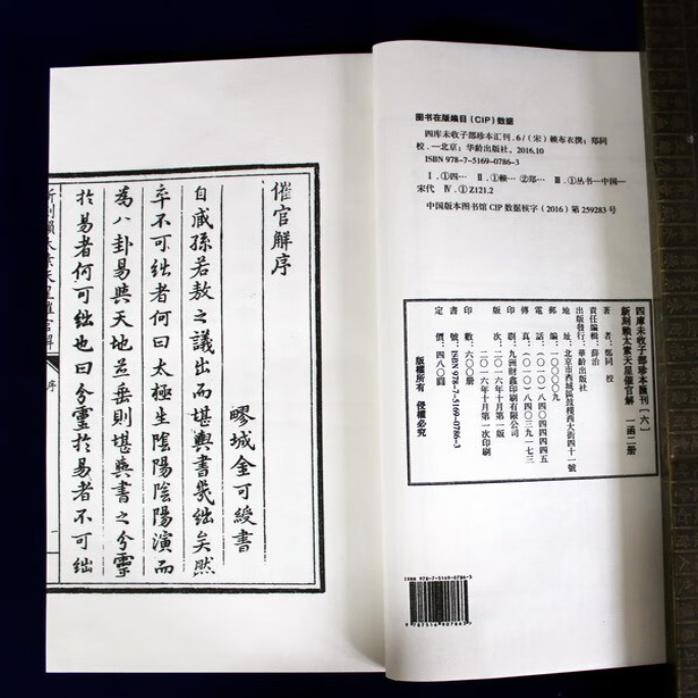 图书在版编目（CIP）数据
四库未收子部珍本汇刊.6/（宋）赖布衣撰；郑同
校.—北京：华龄出版社，2016.10
ISBN 978-7-5169-0786-3
Ⅰ.①四… Ⅱ.①赖… ②郑… Ⅲ.①丛书—中国—
宋代 Ⅳ.①Z121.2
中国版本图书馆CIP数据核字（2016）第259283号
四库未收子部珍本匯刊〔六〕
新刻赖太素天星催官解 一函二册
著者：鄭同 校
責任編輯：薛治
出版發行：華齡出版社
地址：北京市西城區鼓樓西大街四十一號
郵編：一〇〇〇〇九
電話：（〇一〇）八四〇四四四四五
傳真：（〇一〇）八四〇三九一七三
印刷：九洲財鑫印刷有限公司
版次：二〇一六年十月第一版 二〇一六年十月第一次印刷
印數：六〇〇册
書號：ISBN 978-7-5169-0786-3
定價：四八〇圓
版權所有 侵權必究
ISBN 978-7-5169-0786-3
9787516907863
催官解序
城金可綬書
自戚孫若敖之議出而堪輿書幾絀矣然
卒不可絀者何曰太極生陰陽陰陽演而
為八卦易與天地並垂則堪輿書之分靈
於易者何可絀也曰分靈於易者不可絀
新刻賴太素天星催官解 序 一